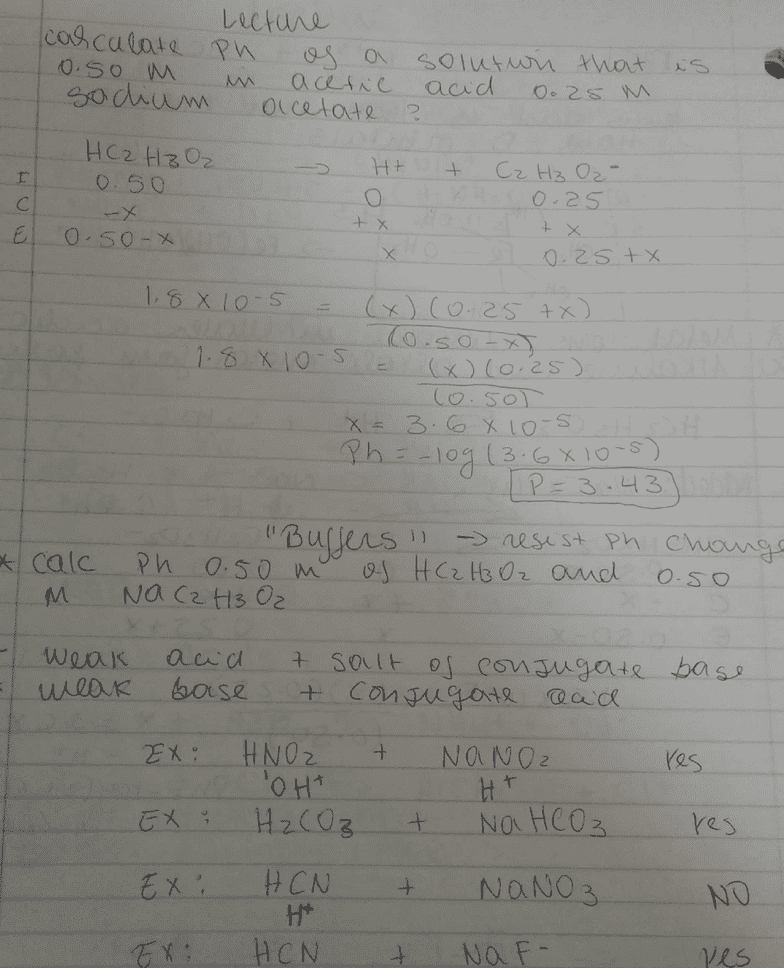 Lecture
calculate Ph of a solution that is
0.50 M in acetic acid 0.25 M
sodium acetate ?
HC2H3O2 → H+ + C2H3O2-
I 0.50 0 0.25
C -x +x +x
E 0.50-x x 0.25+x
1.8 x 10-5 = (x)(0.25 +x)
(0.50-x)
1.8 x 10-5 = (x)(0.25)
(0.50)
x = 3.6 x 10-5
Ph = -log(3.6 x 10-5)
P = 3.43
"Buffers" → resist Ph change
* calc Ph 0.50 m of HC2H3O2 and 0.50
M NaC2H3O2
- weak acid + salt of conjugate base
- weak base + conjugate acid
EX: HNO2 + NaNO2 yes
'OH+ H+
EX: H2CO3 + NaHCO3 yes
EX: HCN + NaNO3 NO
H+
EX: HCN + NaF- yes